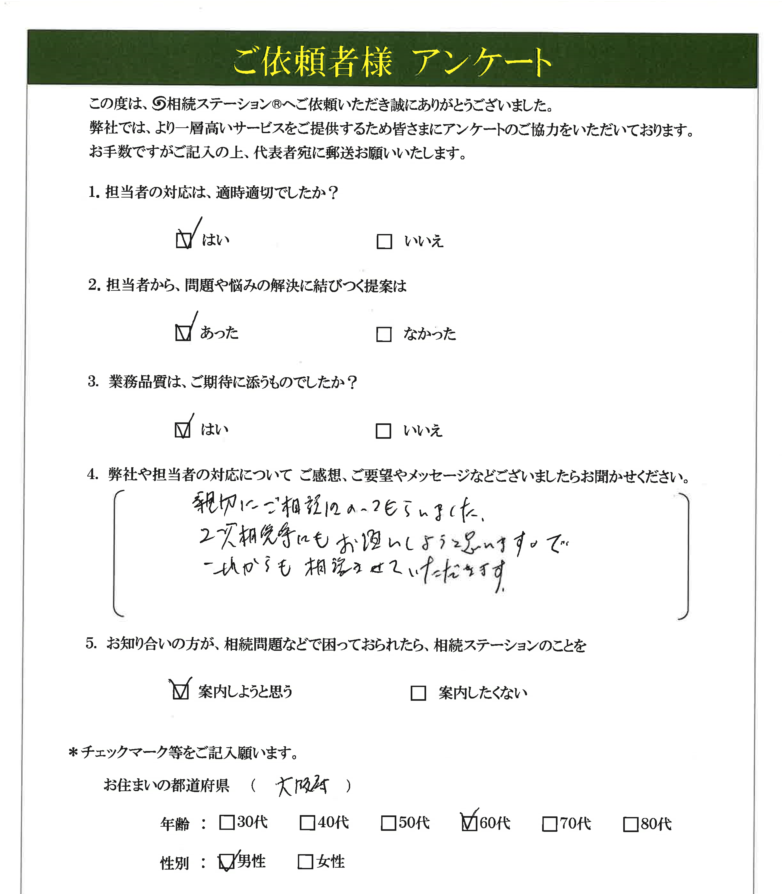 ご依頼者様 アンケート
この度は、相続ステーション®へご依頼いただき誠にありがとうございました。
弊社では、より一層高いサービスをご提供するため皆さまにアンケートのご協力をいただいております。
お手数ですがご記入の上、代表者宛に郵送お願いいたします。
1. 担当者の対応は、適時適切でしたか？
はい いいえ
2. 担当者から、問題や悩みの解決に結びつく提案は
あった なかった
3. 業務品質は、ご期待に添うものでしたか？
はい いいえ
4. 弊社や担当者の対応について ご感想、ご要望やメッセージなどございましたらお聞かせください。
親切にご相談にのってもらいました。
2次相続等にもお願いしようと思いますので
これからも相談させていただきます。
5. お知り合いの方が、相続問題などで困っておられたら、相続ステーションのことを
案内しようと思う 案内したくない
＊チェックマーク等をご記入願います。
お住まいの都道府県 （ 大阪府 ）
年齢 ： 30代 40代 50代 60代 70代 80代
性別 ： 男性 女性